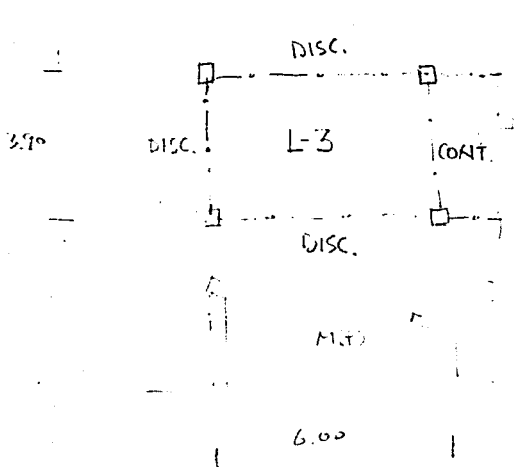 DISC.
3.90
DISC.
L-3
CONT.
DISC.
6.00